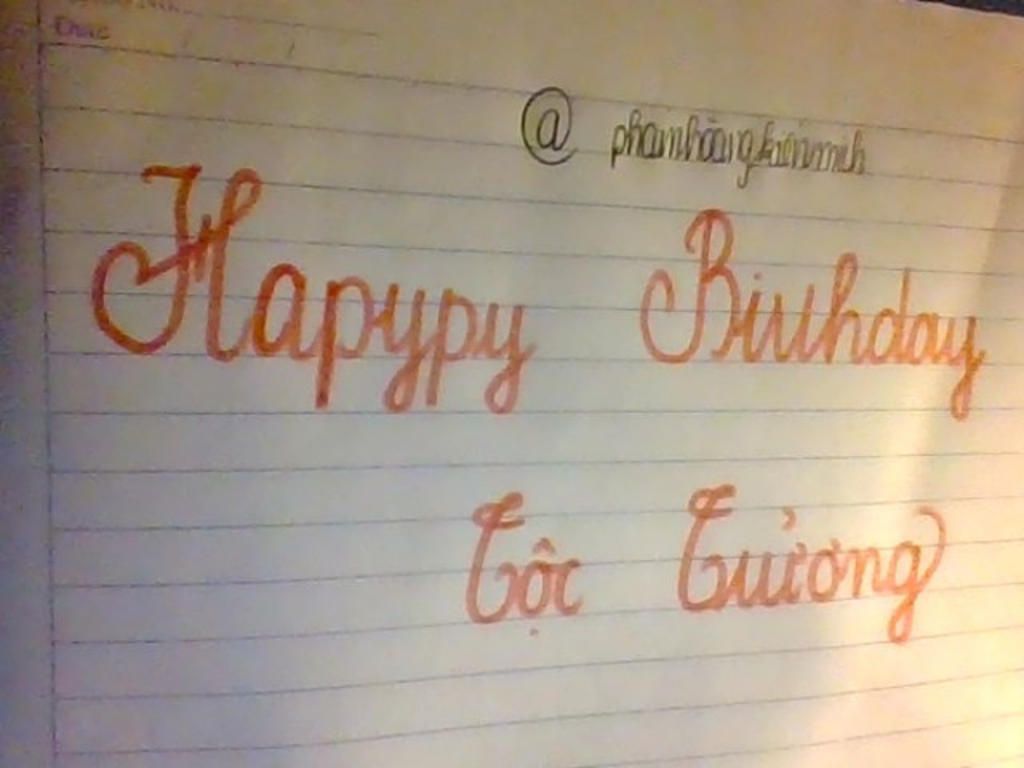 @ phamhoangkienminh
Happy Birthday
Tộc Trưởng